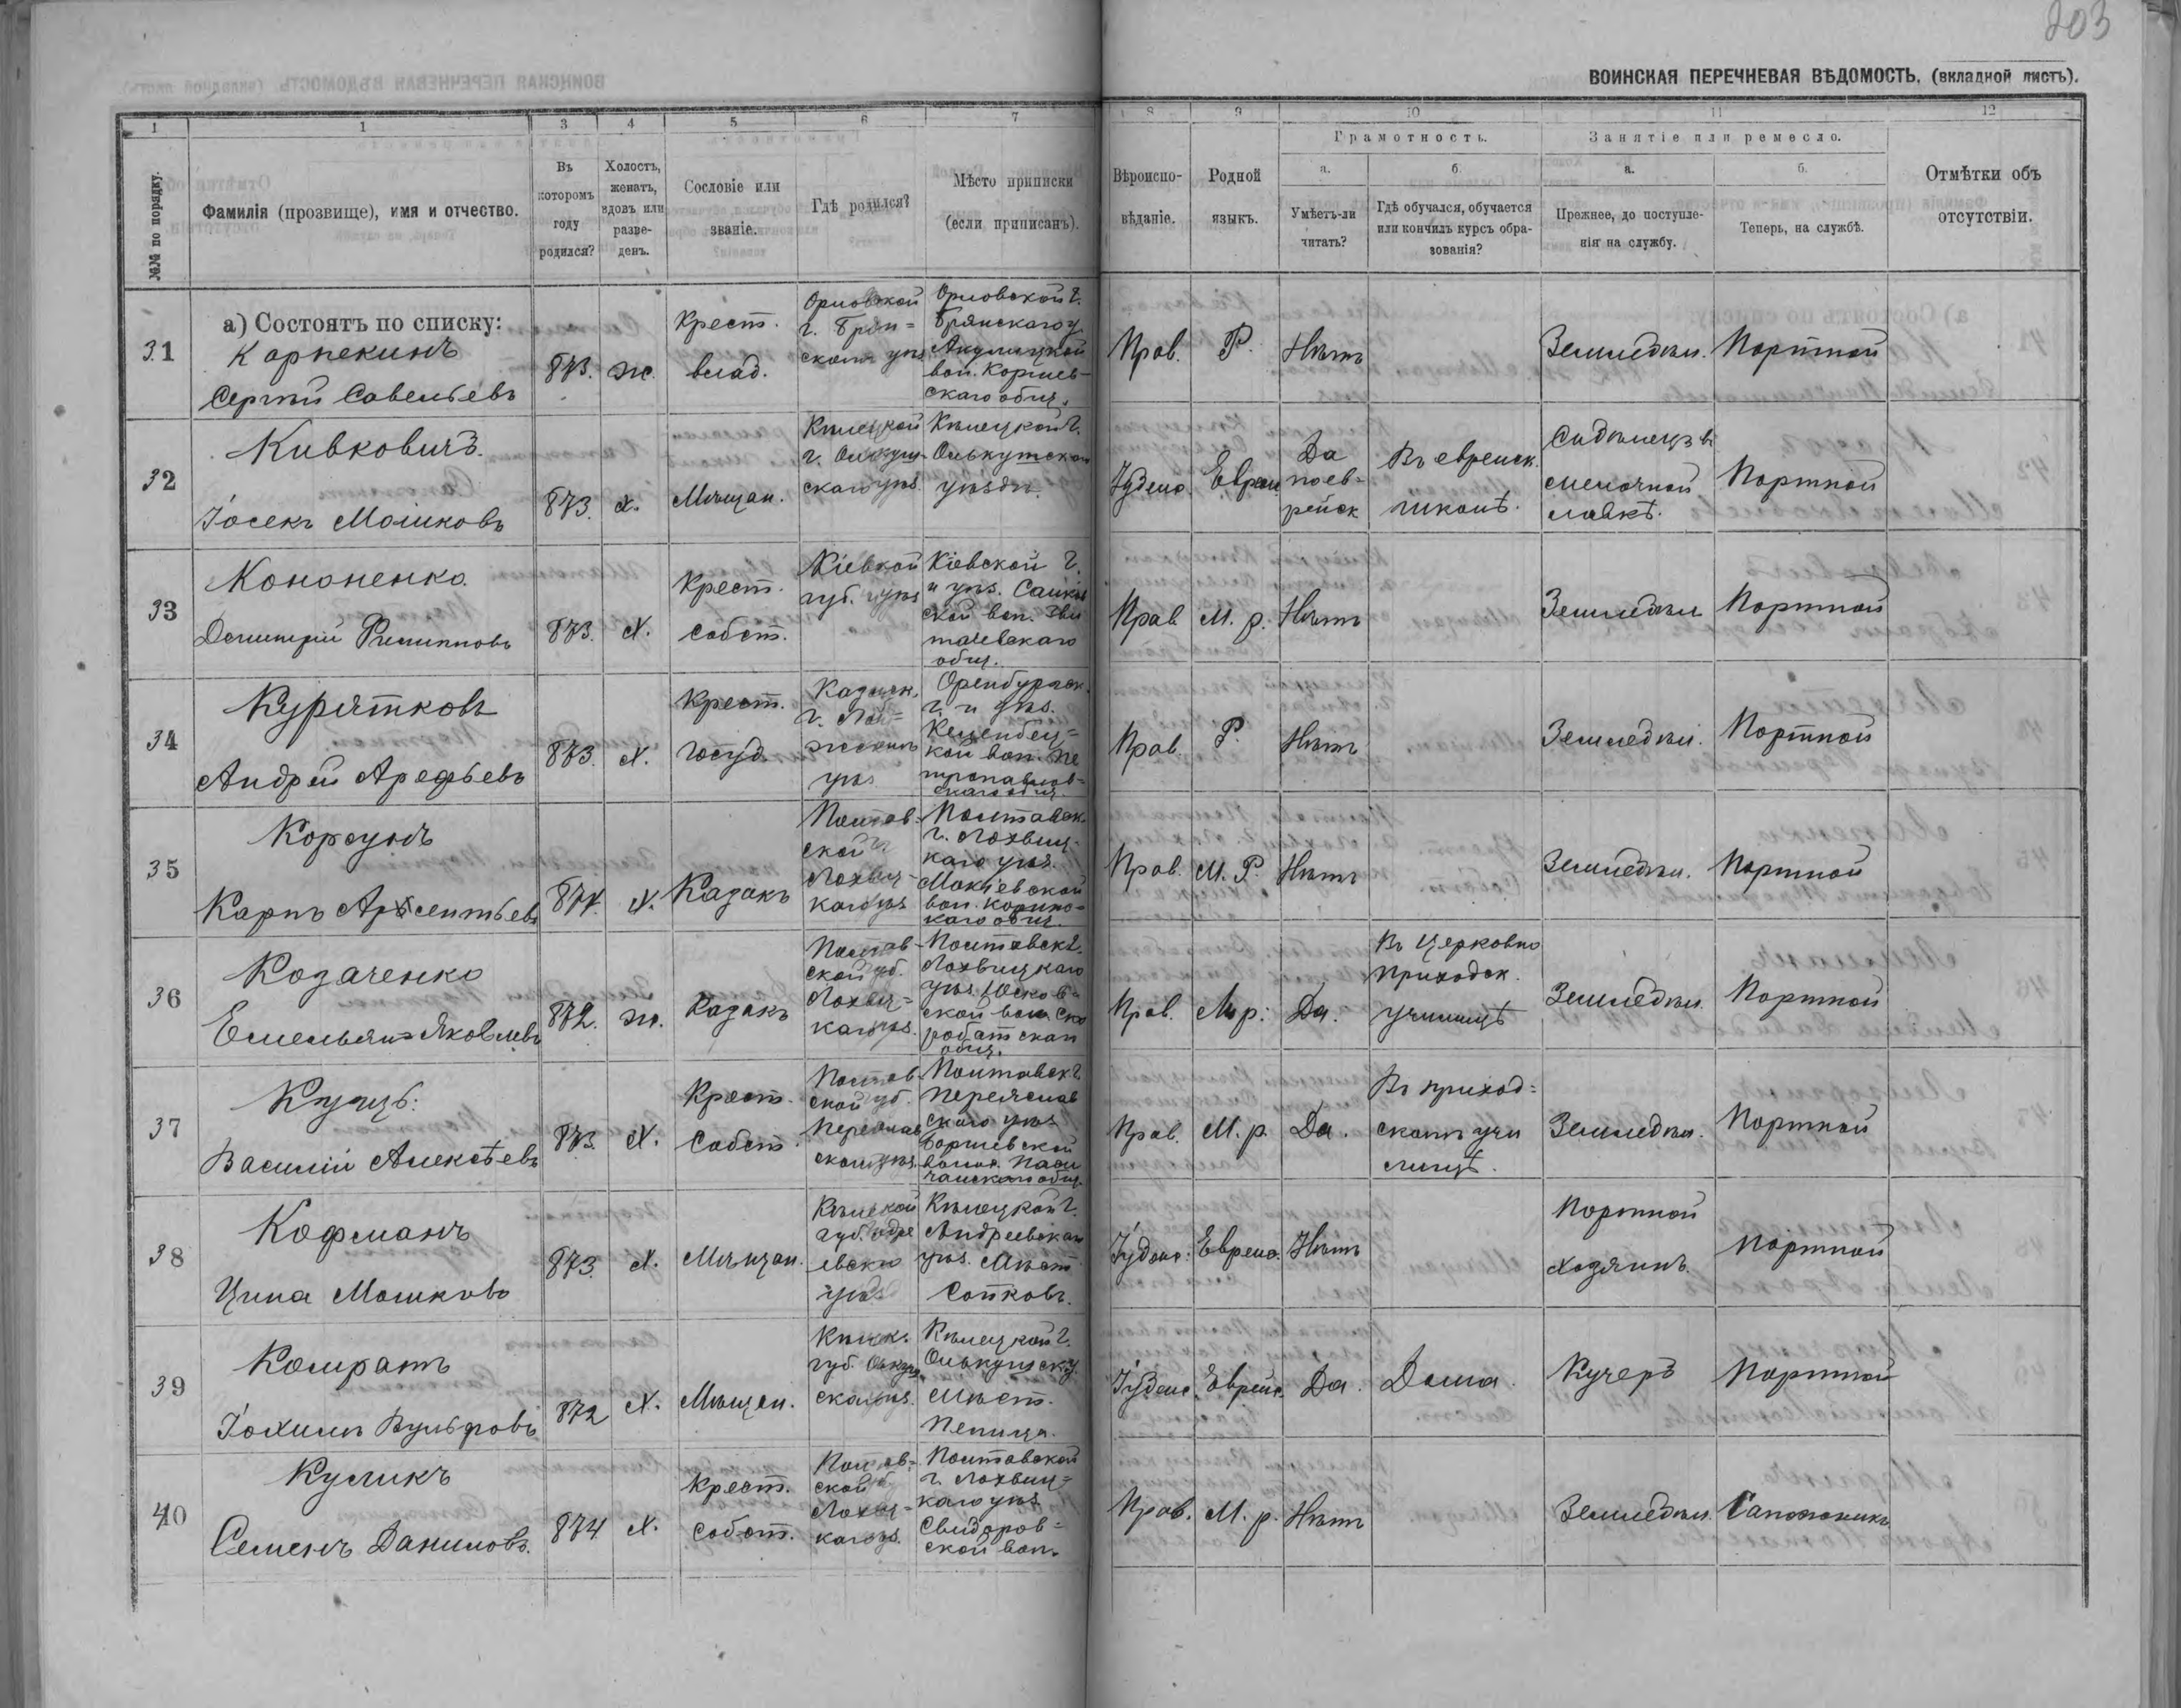 203
ВОИНСКАЯ ПЕРЕЧНЕВАЯ ВѢДОМОСТЬ. (вкладной листъ).
1 1 3 4 5 6 7 8 9 10 11 12
№№ по порядку.
Фамилія (прозвище), имя и отчество.
Въ которомъ году родился?
Холостъ, женатъ, вдовъ или разведенъ.
Сословіе или званіе.
Гдѣ родился?
Мѣсто приписки (если приписанъ).
Вѣроисповѣданіе.
Родной языкъ.
Грамотность.
а. Умѣетъ-ли читать?
б. Гдѣ обучался, обучается или кончилъ курсъ образованія?
Занятіе или ремесло.
а. Прежнее, до поступленія на службу.
б. Теперь, на службѣ.
Отмѣтки объ отсутствіи.
а) Состоятъ по списку:
31
Карпекинъ
Сергѣй Савельевъ
873. ж.
Крест.
влад.
Орловской
г. Брян=
скаго уѣз
Орловской г.
Брянскаго у.
Акулицкой
вол.
скаго общ.
Прав. Р. Нѣтъ
Земледѣл. Портной
32
Кивковичъ.
Іосекъ Мошковъ
873. х. Мѣщан.
Кѣлецкой
г. Олькуш
скаго уѣз.
Кѣлецкой г.
Олькушскаго
уѣзда.
Іудейс. Евреи
Да
поев=
рейск
Въ еврейск.
школѣ.
Сидѣлецъ въ
мелочной
лавкѣ.
Портной
33
Кононенко.
Дмитрій Филипповъ
873. х.
Крест.
собст.
Кіевкой
губ. и уѣз
Кіевской г.
и уѣз.
ской вол.
общ.
Прав М. р. Нѣтъ
Земледѣл Портной
34
Курятковъ
Андрей Арефьевъ
873. х.
Крест.
госуд.
Казанск.
г.
уѣз
Оренбургск.
г. и уѣз.
кой вол. Пе
тропавлов=
скаго общ.
Прав. Р. Нѣтъ
Земледѣл. Портной
35
Корсунъ
Карпъ Арсентьевъ
874. х. Казакъ
Полтав=
ской г.
Лохвиц=
каго уѣз
Полтавск.
г. Лохвиц=
каго уѣз.
вол.
каго общ.
Прав. М. Р. Нѣтъ
Земледѣл. Портной
36
Козаченко
Емельянъ Яковлевъ
872. ж. Казакъ
Полтав=
ской губ.
Лохвиц=
каго уѣз.
Полтавск г.
Лохвицкаго
уѣз. Юсков=
ской вол. Ско
робагатскаго
общ.
Прав. М. р. Да.
Въ Церковно
приходск.
училищѣ
Земледѣл. Портной
37
Купцъ.
Василій Алексѣевъ
873. х.
Крест.
Собст.
Полтав
ской губ.
Переяслав
скаго уѣз.
Полтавск г.
Переяслав
скаго уѣз
волос.
общ.
Прав. М. р. Да.
Въ приход=
скомъ учи
лищѣ.
Земледѣл. Портной
38
Кофманъ
Мошковъ
873. х. Мѣщан.
губ. Андре
евска
уѣзд
Кѣлецкой г.
Андреевскаго
уѣз. Мѣст.
Іудейс. Еврейс. Нѣтъ
Портной
хозяинъ.
Портной
39
Іохимъ Вульфовъ
872 х. Мѣщан.
губ. Олькуш
скаго уѣз.
Кѣлецкой г.
Олькушск у.
Мѣст.
Пилица.
Іудейс. Еврейс. Да. Дома.
Кучеръ Портной
40
Куликъ
Семенъ Даниловъ.
874 х.
Крест.
Собст.
Полтав=
ской губ
Лохвиц=
каго уѣз.
Полтавской
г. Лохвиц=
каго уѣз
Свидоров=
ской вол.
Прав. М. р. Нѣтъ
Земледѣл. Сапожникъ